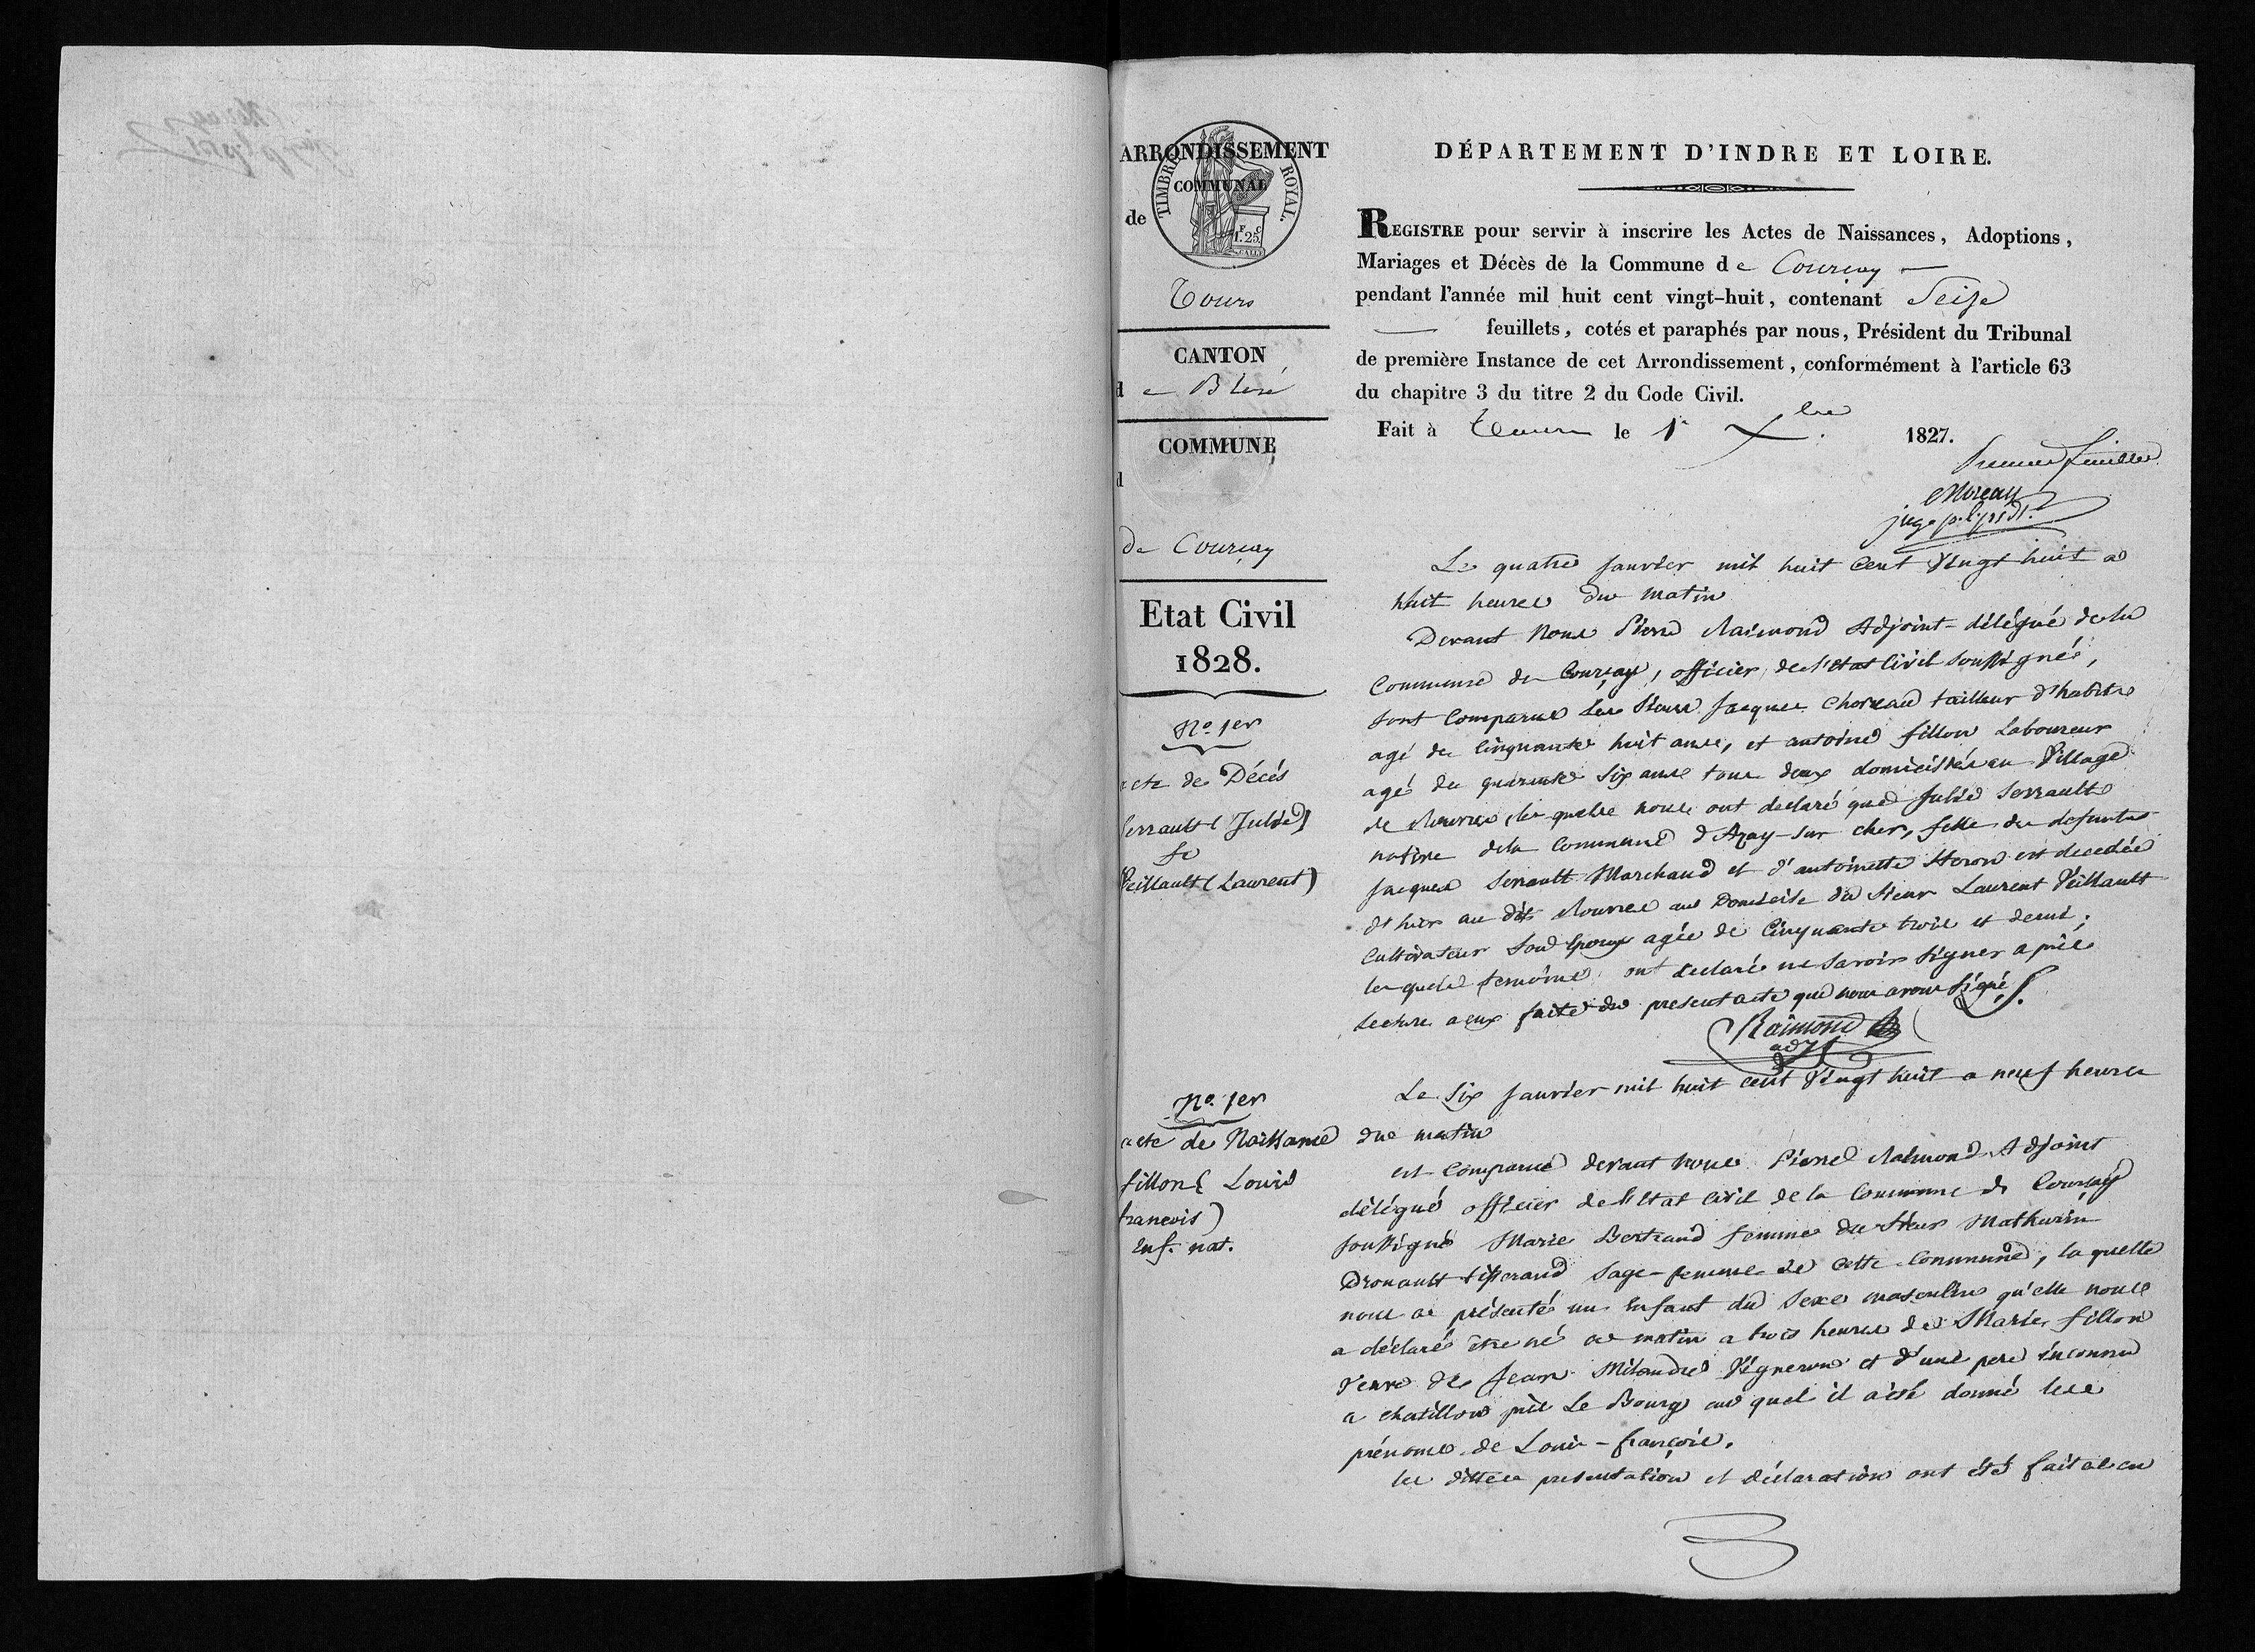 ARRONDISSEMENT
TIMBRE ROYAL.
COMMUNAL
F. C
1.25.
de
Tours
CANTON
d e Bléré
COMMUNE
d
de Courçay
Etat Civil
1828.
DÉPARTEMENT D'INDRE ET LOIRE.
REGISTRE pour servir à inscrire les Actes de Naissances, Adoptions,
Mariages et Décès de la Commune d e Courçay
pendant l'année mil huit cent vingt-huit, contenant Seize
feuillets, cotés et paraphés par nous, Président du Tribunal
de première Instance de cet Arrondissement, conformément à l'article 63
du chapitre 3 du titre 2 du Code Civil.
Fait à Tours le 1r Xbre 1827.
Premier feuillet
Moreau
juge p. l. prsdt.
No. 1er
acte de Décés
Serrault (Julie)
fe
Veillault (Laurent)
Le quatre janvier mil huit Cent Vingt huit a
huit heures du matin
Devant Nous Pierre Raimond Adjoint-délégué de la
Commune de Courçay, officier de l'état Civil Soussigné,
Sont Comparus les Sieurs Jacques Choreau tailleur d'habits
agé de Cinquante huit ans, et antoine fillon Laboureur
agé de quarante Six ans tous deux domiciliés au Village
de Rouvres, les quels nous ont declaré que Julie Serrault
native de la Commune d'Azay-sur cher, fille de defunts
Jacques Serrault Marchand et d'antoinette Heron est decedée
d'hier au dit Rouvres au Domicile du Sieur Laurent Veillault
Cultivateur Son Epoux agée de Cinquante trois et demi,
les quels temoins ont declaré ne Savoir Signer après
lecture a eux faite du present acte que nous avons Signé.
Raimond
adjt
No. 1er
acte de Naissance
fillon ( Louis
francois)
Enf. nat.
Le Six janvier mil huit cent Vingt huit a neuf heures
du matin
est Comparue devant Nous Pierre Raimond Adjoint
délégué officier de l'Etat Civil de la Commune de Courçay
soussigné Marie Bertrand femme du Sieur Mathurin
Drouault tisserand Sage-femme de cette Commune, la quelle
nous a présenté un Enfant du Sexe masculin qu'elle nous
a déclaré être né ce matin a trois heures de Marie fillon
Veuve de Jean Milandre Vigneron et d'une pere inconnu
a chatillon près Le Bourg au quel il a été donné les
prénoms de Louis-françois.
les dittes presentation et déclaration ont étés faites en